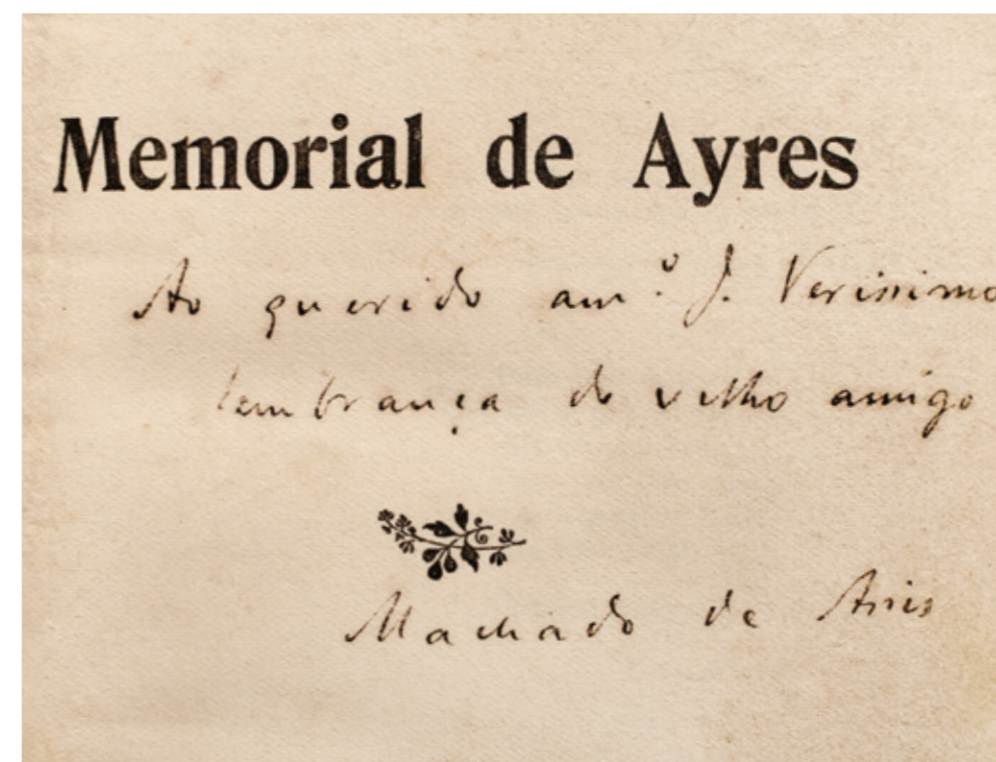 Memorial de Ayres
Ao querido am.º J. Verissimo
lembrança do velho amigo
Machado de Assis